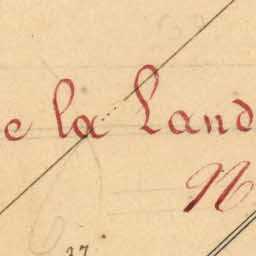 e la Land
N
37